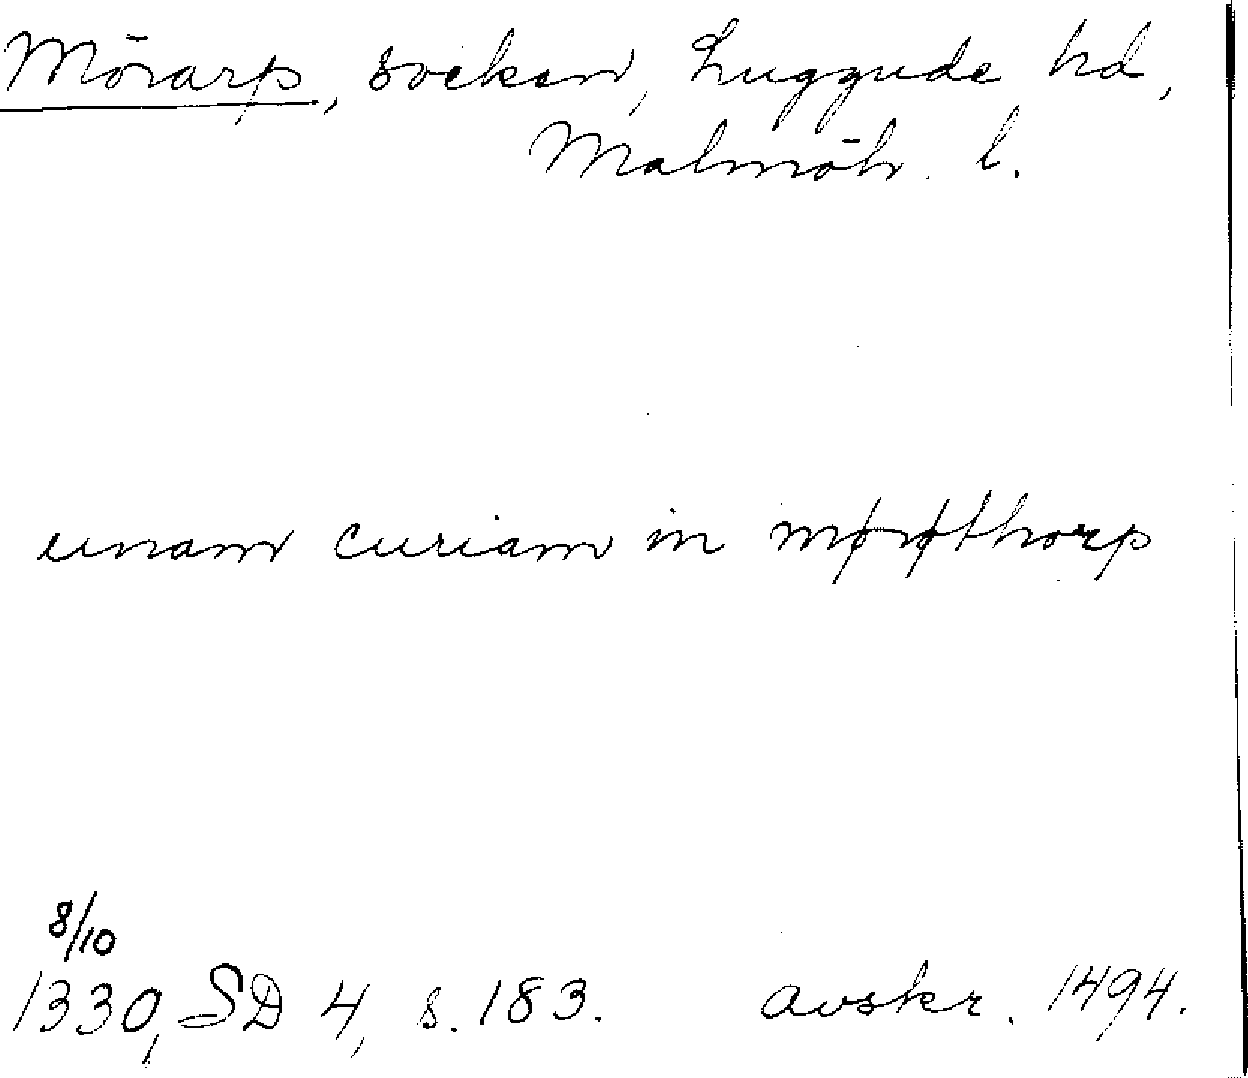 Mörarp, socken, Luggude hd,
Malmöh. l.
unam curiam in mørøthorp
8/10
1330, SD 4, s. 183. avskr. 1494.